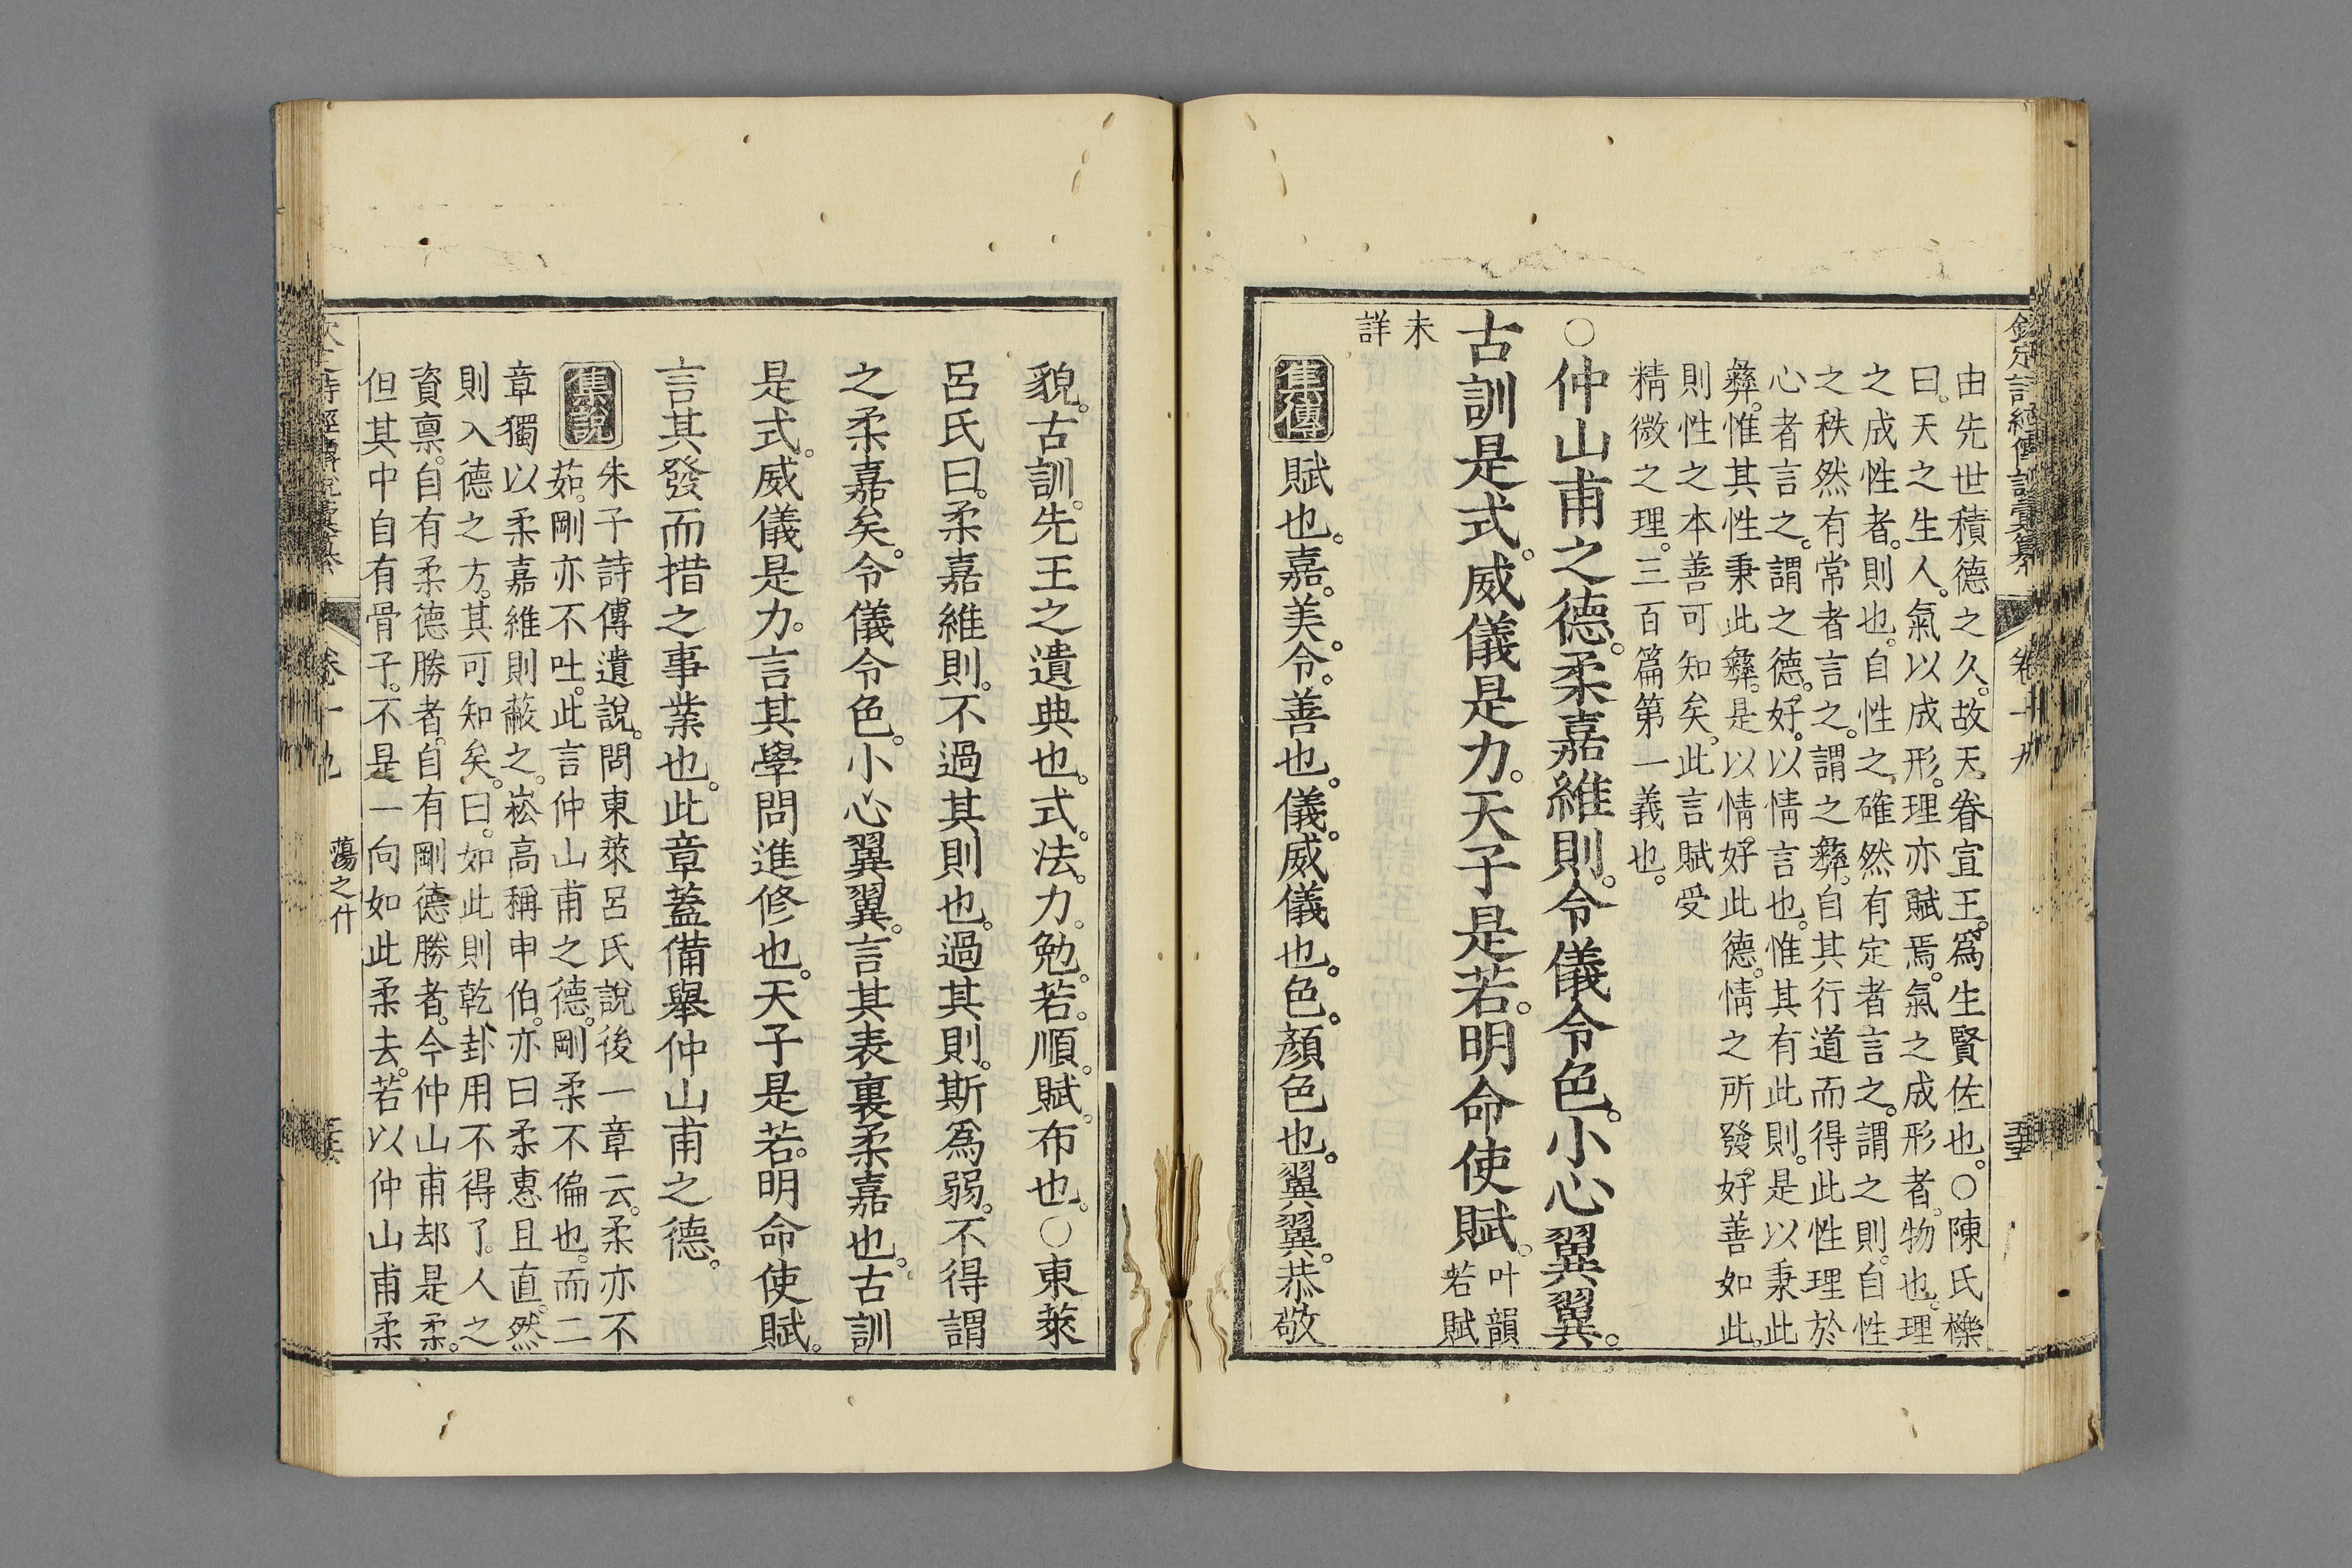 欽定詩經傳說彙纂 卷十九
由先世積德之久。故天眷宣王。爲生賢佐也。○陳氏櫟
曰。天之生人。氣以成形。理亦賦焉。氣之成形者。物也。理
之成性者。則也。自性之確然有定者言之。謂之則。自性
之秩然有常者言之。謂之彝。自其行道而得此性理於
心者言之。謂之德。好。以情言也。惟其有此則。是以秉此
彝。惟其性秉此彝。是以情好此德。情之所發。好善如此。
則性之本善可知矣。此言賦受
精微之理。三百篇第一義也。
○仲山甫之德。柔嘉維則。令儀令色。小心翼翼。
古訓是式。威儀是力。天子是若。明命使賦。叶韻
若賦
未
詳
集傳 賦也。嘉。美。令。善也。儀。威儀也。色。顏色也。翼翼。恭敬
貌。古訓。先王之遺典也。式。法。力。勉。若。順。賦。布也。○東萊
呂氏曰。柔嘉維則。不過其則也。過其則。斯爲弱。不得謂
之柔嘉矣。令儀令色。小心翼翼。言其表裏柔嘉也。古訓
是式。威儀是力。言其學問進修也。天子是若。明命使賦。
言其發而措之事業也。此章蓋備舉仲山甫之德。
集說 朱子詩傳遺說。問東萊呂氏說後一章云。柔亦不
茹。剛亦不吐。此言仲山甫之德。剛柔不偏也。而二
章獨以柔嘉維則蔽之。崧高稱申伯。亦曰柔惠且直。然
則入德之方。其可知矣。曰。如此則乾卦用不得了。人之
資禀。自有柔德勝者。自有剛德勝者。今仲山甫却是柔。
但其中自有骨子。不是一向如此柔去。若以仲山甫柔
蕩之什